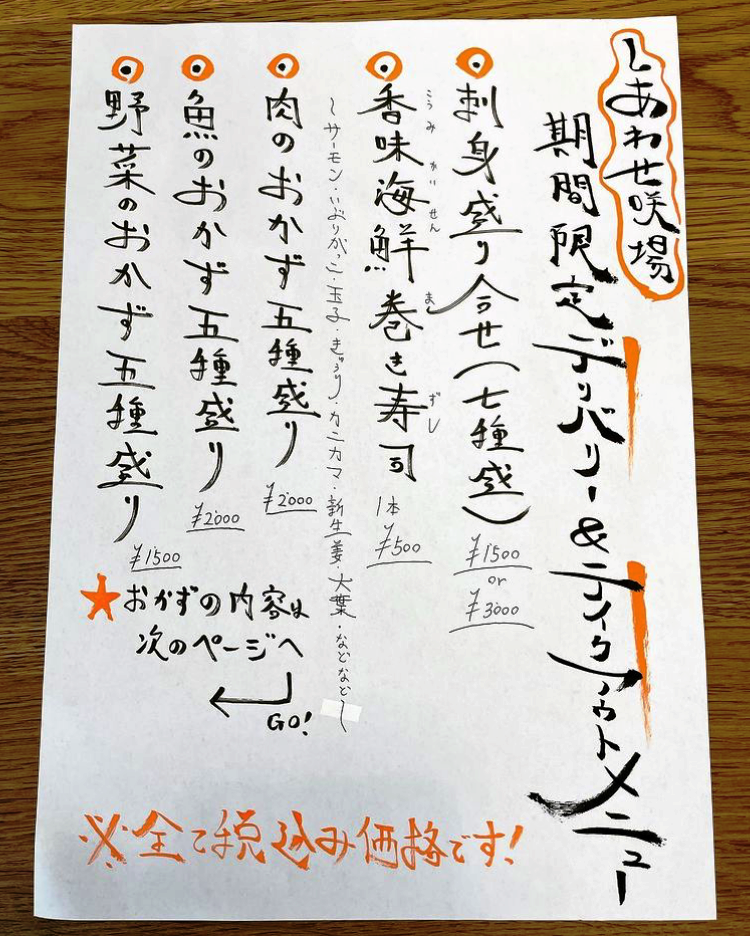 しあわせ咲場
期間限定デリバリー&テイクアウトメニュー
刺身盛り合せ(七種盛)
¥1500
or
¥3000
香味海鮮巻き寿司
こうみ かいせん ま ずし
1本
¥500
〜サーモン・いぶりがっこ・玉子・きゅうり・カニカマ・新生姜・大葉・などなど〜
肉のおかず五種盛り
¥2000
魚のおかず五種盛り
¥2000
野菜のおかず五種盛り
¥1500
★おかずの内容は
次のページへ
GO!
※全て税込み価格です!